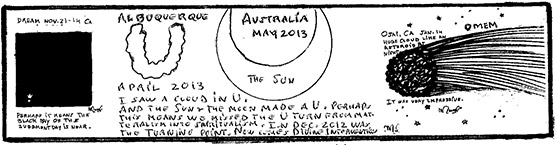 DREAM NOV. 21-14 CA
PERHAPS IT MEANS THE
BLACK DAY OF THE
JUDGMENT DAY IS NEAR.
ALBUQUERQUE
APRIL 2013
AUSTRALIA
MAY 2013
THE SUN
I SAW A CLOUD IN U.
AND THE SUN & THE MOON MADE A U. PERHAPS
THIS MEANS WE MISSED THE U TURN FROM MAT-
ERIALISM INTO SPIRITUALISM. IN DEC. 2012 WAS
THE TURNING POINT. NOW COMES DIVINE INTERVENTION
OJAI, CA JAN. 14
HUGE CLOUD LIKE AN
ASTEROID AT
NIGHT
OMEM
IT WAS VERY IMPRESSIVE.